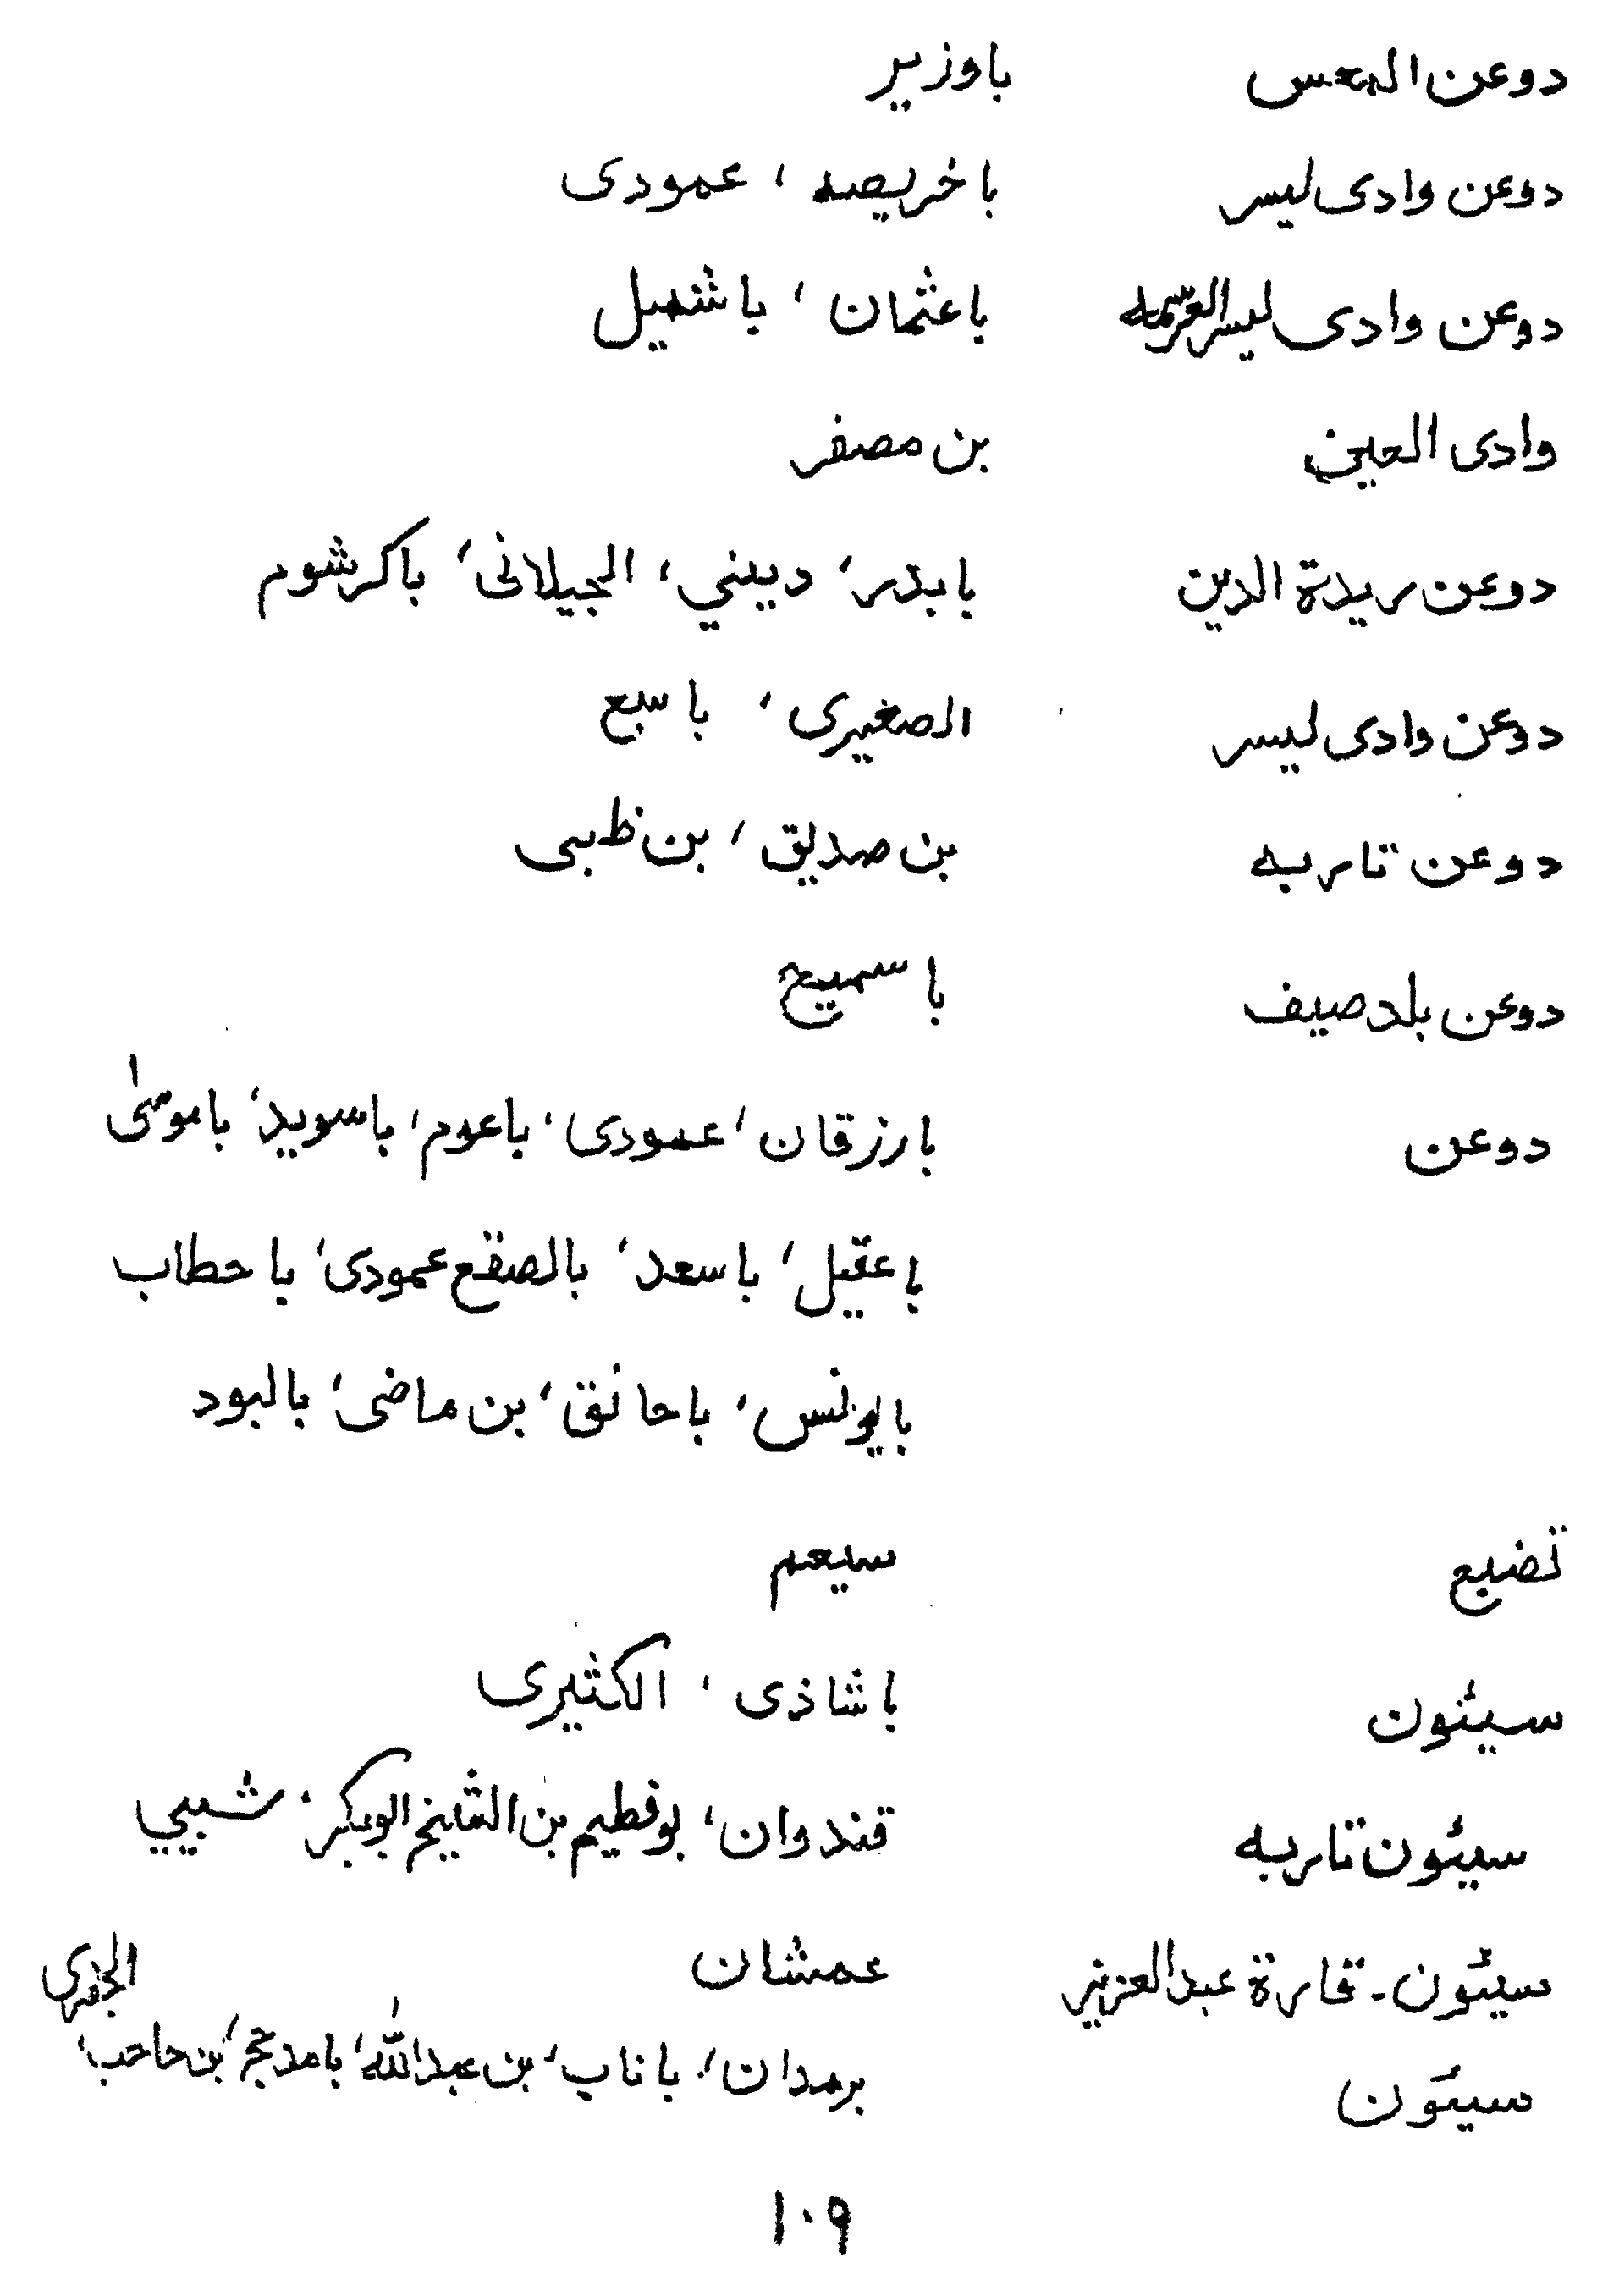 دوعن باوزير
دوعن وادى ليسر باخريصه ، عمودى
دوعن وادى ليسر العرسمه باعثمان ، باشميل
وادى العين بن مصفر
دوعن ريدة الدين بابدر ، ديني ، الجيلانى ، باكرشوم
دوعن وادى ليسر الصغيرى ، باسبع
دوعن تاربه بن صديق ، بن ظبى
دوعن بلد صيف باسميح
دوعن بارزقان ، عمودى ، باعوم ، باسويد ، باموسى
باعقيل ، باسعد ، بالصقع عمودى ، باحطاب
بايونس ، باحانق ، بن ماضى ، بالبود
تضبع سيعم
سيئون باشاذى ، الكثيرى
سيئون تاربه قندوان ، بوفطيم بن الشيخ ابوبكر ، شيبي
سيئون - قارة عبدالعزيز عمشان
سيئون برمدان ، باناب ، بن عبدالله ، بامدحج ، بن حاحب ، الجفرى
١٠٩